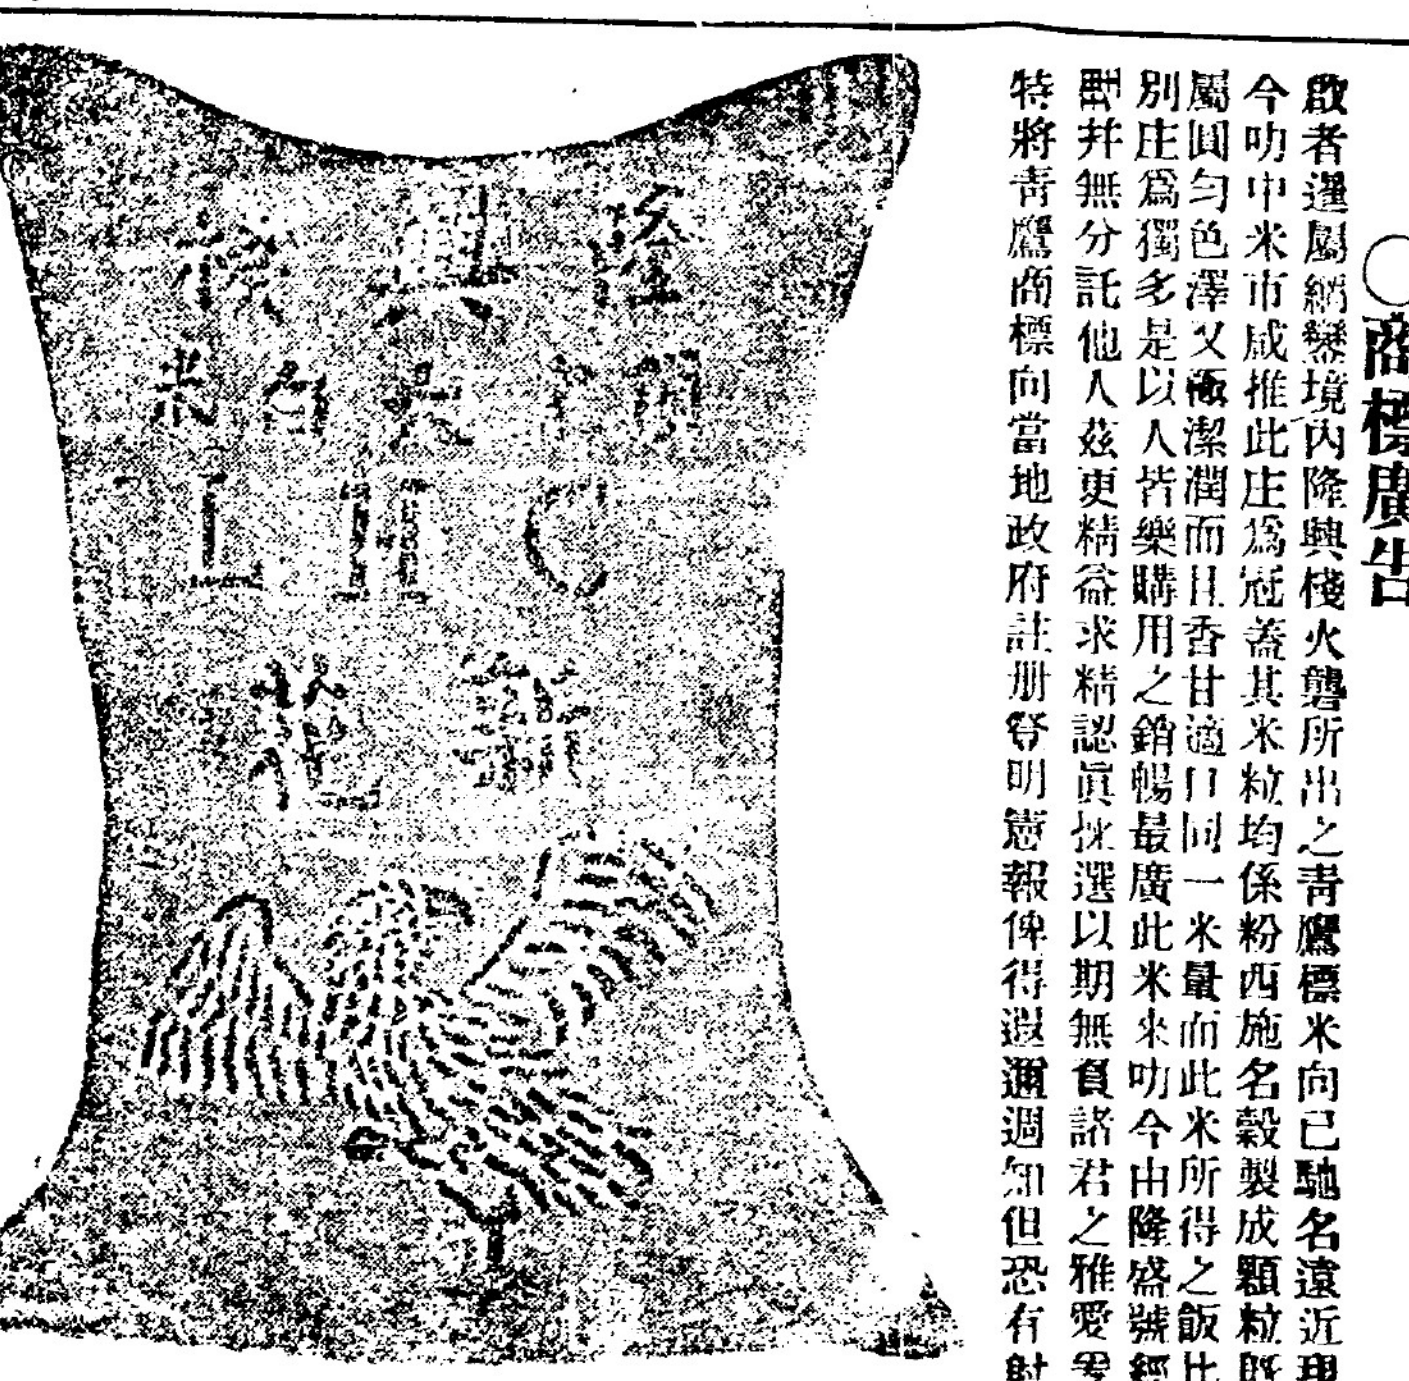 商標廣告
啟者暹屬網繁境內隆興棧火礱所出之青鷹標米向已馳名遠近現
今叻中米市咸推此庄為冠蓋其米粒均係粉西施名穀製成顆粒既
屬圓勻色澤又極潔潤而且香甘適口同一米量而此米所得之飯比
別庄為獨多是以人皆樂購用之銷暢最廣此米來叻今由隆盛號經
理并無分託他人茲更精益求精認眞採選以期無負諸君之雅愛
特將青鷹商標向當地政府註册登明憲報俾得遐邇週知但恐有射
隆興棧
米
LHC